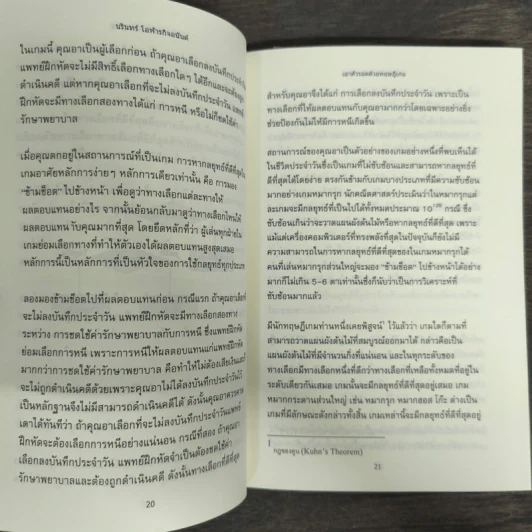 นรินทร์ โอฬารกิจอนันต์
ในเกมนี้ คุณอาเป็นผู้เลือกก่อน ถ้าคุณอาเลือกลงบันทึกประจำวัน
แพทย์ฝึกหัดจะไม่มีสิทธิ์เลือกทางเลือกใดๆ ได้อีกและจะต้องถูก
ดำเนินคดี แต่หากคุณอาเลือกที่จะไม่ลงบันทึกประจำวัน แพทย์
ฝึกหัดจะมีทางเลือกสองทางได้แก่ การหนี หรือไม่ก็ชดใช้ค่า
รักษาพยาบาล
เมื่อคุณตกอยู่ในสถานการณ์ที่เป็นเกม การหากลยุทธ์ที่ดีที่สุดใน
เกมอาศัยหลักการง่ายๆ หลักการเดียวเท่านั้น คือ การมอง
"ข้ามช็อต" ไปข้างหน้า เพื่อดูว่าทางเลือกแต่ละทางให้
ผลตอบแทนอย่างไร จากนั้นย้อนกลับมาดูว่าทางเลือกไหนให้
ผลตอบแทนกับคุณมากที่สุด โดยยึดหลักที่ว่า ผู้เล่นทุกฝ่ายใน
เกมย่อมเลือกทางที่ทำให้ตัวเองได้ผลตอบแทนสูงสุดเสมอ
หลักการนี้เป็นหลักการที่เป็นหัวใจของการใช้กลยุทธ์ทุกประเภท
ลองมองข้ามช็อตไปที่ผลตอบแทนก่อน กรณีแรก ถ้าคุณอาเลือกที่
จะไม่ลงบันทึกประจำวัน แพทย์ฝึกหัดจะมีทางเลือกสองทาง
ระหว่าง การชดใช้ค่ารักษาพยาบาลกับการหนี ซึ่งแพทย์ฝึกหัด
ย่อมเลือกการหนี เพราะการหนีให้ผลตอบแทนแก่แพทย์ฝึกหัด
มากกว่าการชดใช้ค่ารักษาพยาบาล คือทำให้ไม่ต้องเสียเงินและ
จะไม่ถูกดำเนินคดีด้วยเพราะคุณอาไม่ได้ลงบันทึกประจำวันไว้
เป็นหลักฐานจึงไม่มีสามารถดำเนินคดีได้ ดังนั้นคุณอาควรจะ
เดาได้ทันทีว่า ถ้าคุณอาเลือกที่จะไม่ลงบันทึกประจำวันแพทย์
ฝึกหัดจะต้องเลือกการหนีอย่างแน่นอน กรณีที่สอง ถ้าคุณอา
เลือกลงบันทึกประจำวัน แพทย์ฝึกหัดจำเป็นต้องชดใช้ค่า
รักษาพยาบาลและต้องถูกดำเนินคดี ดังนั้นทางเลือกที่ดีที่สุด
20
เอาตัวรอดด้วยทฤษฎีเกม
สำหรับคุณอาจึงได้แก่ การเลือกลงบันทึกประจำวัน เพราะเป็น
ทางเลือกที่ให้ผลตอบแทนกับคุณอามากกว่าโดยเฉพาะอย่างยิ่ง
ช่วยป้องกันไม่ให้มีการหนีเกิดขึ้น
สถานการณ์ของคุณอาเป็นตัวอย่างของเกมอย่างหนึ่งที่พบเห็นได้
ในชีวิตประจำวันซึ่งเป็นเกมที่ไม่ซับซ้อนและสามารถหากลยุทธ์ที่
ดีที่สุดได้โดยง่าย ตรงกันข้ามกับเกมบางประเภทที่มีความซับซ้อน
มากอย่างเกมหมากรุก นักคณิตศาสตร์ประเมินว่าในหมากรุกแต่
ละเกมจะมีกลยุทธ์ที่เป็นไปได้ทั้งหมดประมาณ 10¹²⁰ กรณี ซึ่ง
ซับซ้อนเกินกว่าจะวาดแผนผังต้นไม้หรือหากลยุทธ์ที่ดีที่สุด เพราะ
แม้แต่เครื่องคอมพิวเตอร์ที่ทรงพลังที่สุดในปัจจุบันก็ยังไม่มี
ความสามารถในการหากลยุทธ์ที่ดีที่สุดของเกมหมากรุกได้
คนที่เล่นหมากรุกส่วนใหญ่จะมอง "ข้ามช็อต" ไปข้างหน้าได้อย่าง
มากก็ไม่เกิน 5-6 ตาเท่านั้นซึ่งก็นับว่าเป็นการวิเคราะห์ที่
ซับซ้อนมากแล้ว
มีนักทฤษฎีเกมท่านหนึ่งเคยพิสูจน์¹ ไว้แล้วว่า เกมใดก็ตามที่
สามารถวาดแผนผังต้นไม้ที่สมบูรณ์ออกมาได้ กล่าวคือเป็น
แผนผังต้นไม้ที่มีจำนวนกิ่งที่แน่นอน และในทุกระดับของ
ทางเลือกมีทางเลือกหนึ่งที่ดีกว่าทางเลือกที่เหลือทั้งหมดที่อยู่ใน
ระดับเดียวกันเสมอ เกมนั้นจะมีกลยุทธ์ที่ดีที่สุดอยู่เสมอ เกม
หมากกระดานส่วนใหญ่ เช่น หมากรุก หมากฮอส โก๊ะ ต่างเป็น
เกมที่มีลักษณะดังกล่าวทั้งสิ้น เกมเหล่านี้จะมีกลยุทธ์ที่ดีที่สุดอยู่
1
กฎของคูน (Kuhn's Theorem)
21